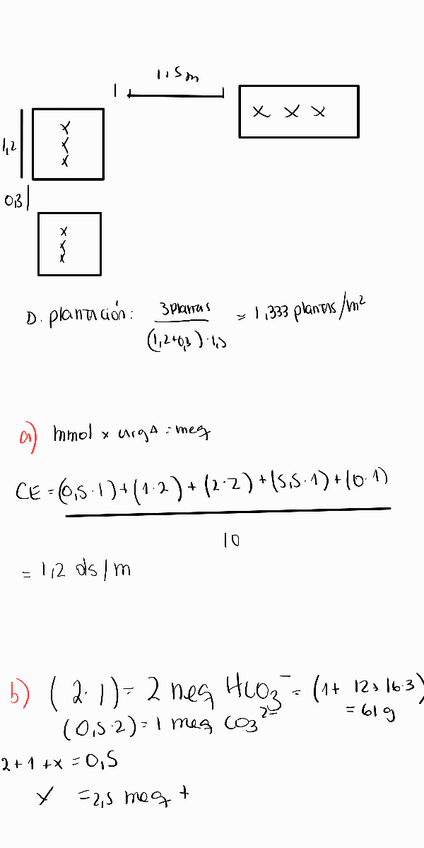 1,5m
x x x
1,2
x
x
x
0,3
x
x
x
D. plantación: 3 plantas / (1,2+0,3)·1,5 = 1,333 plantas/m²
a) mmol x carga = meq
CE = (0,5·1)+(1·2)+(2·2)+(5,5·1)+(0·1)
10
= 1,2 ds/m
b) (2·1) = 2 meq HCO₃⁻ = (1+ 12+16·3)
= 61 g
(0,5·2) = 1 meq CO₃²⁻
2+1+x = 0,5
x = 2,5 meq +